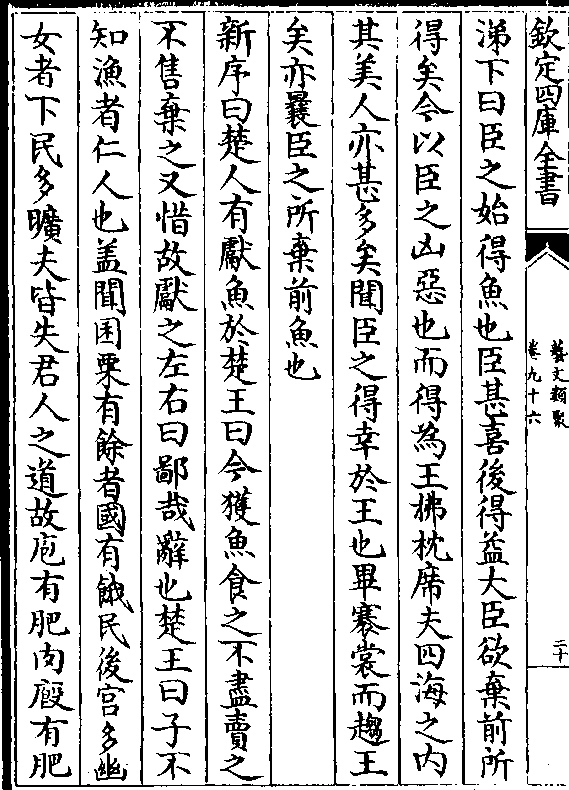 欽定四庫全書
藝文類聚
卷九十六
二十
涕下曰臣之始得魚也臣甚喜後得益大臣欲棄前所
得矣今以臣之凶惡也而得為王拂枕席夫四海之内
其美人亦甚多矣聞臣之得幸於王也畢褰裳而趨王
矣亦曩臣之所棄前魚也
新序曰楚人有獻魚於楚王曰今獲魚食之不盡賣之
不售棄之又惜故獻之左右曰鄙哉辭也楚王曰子不
知漁者仁人也盖聞囷粟有餘者國有餓民後宫多幽
女者下民多曠夫皆失君人之道故庖有肥肉廐有肥